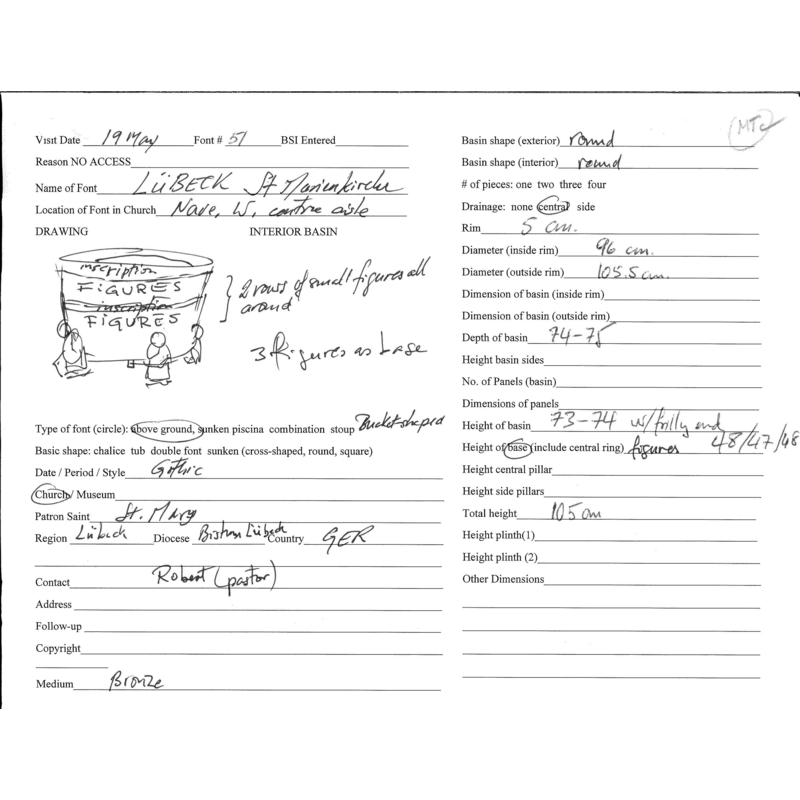 MTC
Visit Date 19 May Font # 51 BSI Entered
Reason NO ACCESS
Name of Font LÜBECK St Marienkirche
Location of Font in Church Nave, W, centre aisle
DRAWING INTERIOR BASIN
inscription
FIGURES
inscription
FIGURES
2 rows of small figures all
around
3 figures as base
Type of font (circle): above ground, sunken piscina combination stoup Bucket shaped
Basic shape: chalice tub double font sunken (cross-shaped, round, square)
Date / Period / Style Gothic
Church / Museum
Patron Saint St. Mary
Region Lübeck Diocese Bistum Lübeck Country GER
Contact Robert (pastor)
Address
Follow-up
Copyright
Medium Bronze
Basin shape (exterior) round
Basin shape (interior) round
# of pieces: one two three four
Drainage: none central side
Rim 5 cm.
Diameter (inside rim) 96 cm.
Diameter (outside rim) 105.5 cm.
Dimension of basin (inside rim)
Dimension of basin (outside rim)
Depth of basin 74-75
Height basin sides
No. of Panels (basin)
Dimensions of panels
Height of basin 73-74 w/ frilly end
Height of base (include central ring) figures 48/47/48
Height central pillar
Height side pillars
Total height 105 cm
Height plinth(1)
Height plinth (2)
Other Dimensions